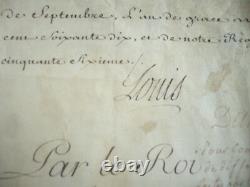 de Septembre, L'an de grace m
cent Soixante dix, et de notre Rég
cinquante Sixieme.
Louis
Par le Roi